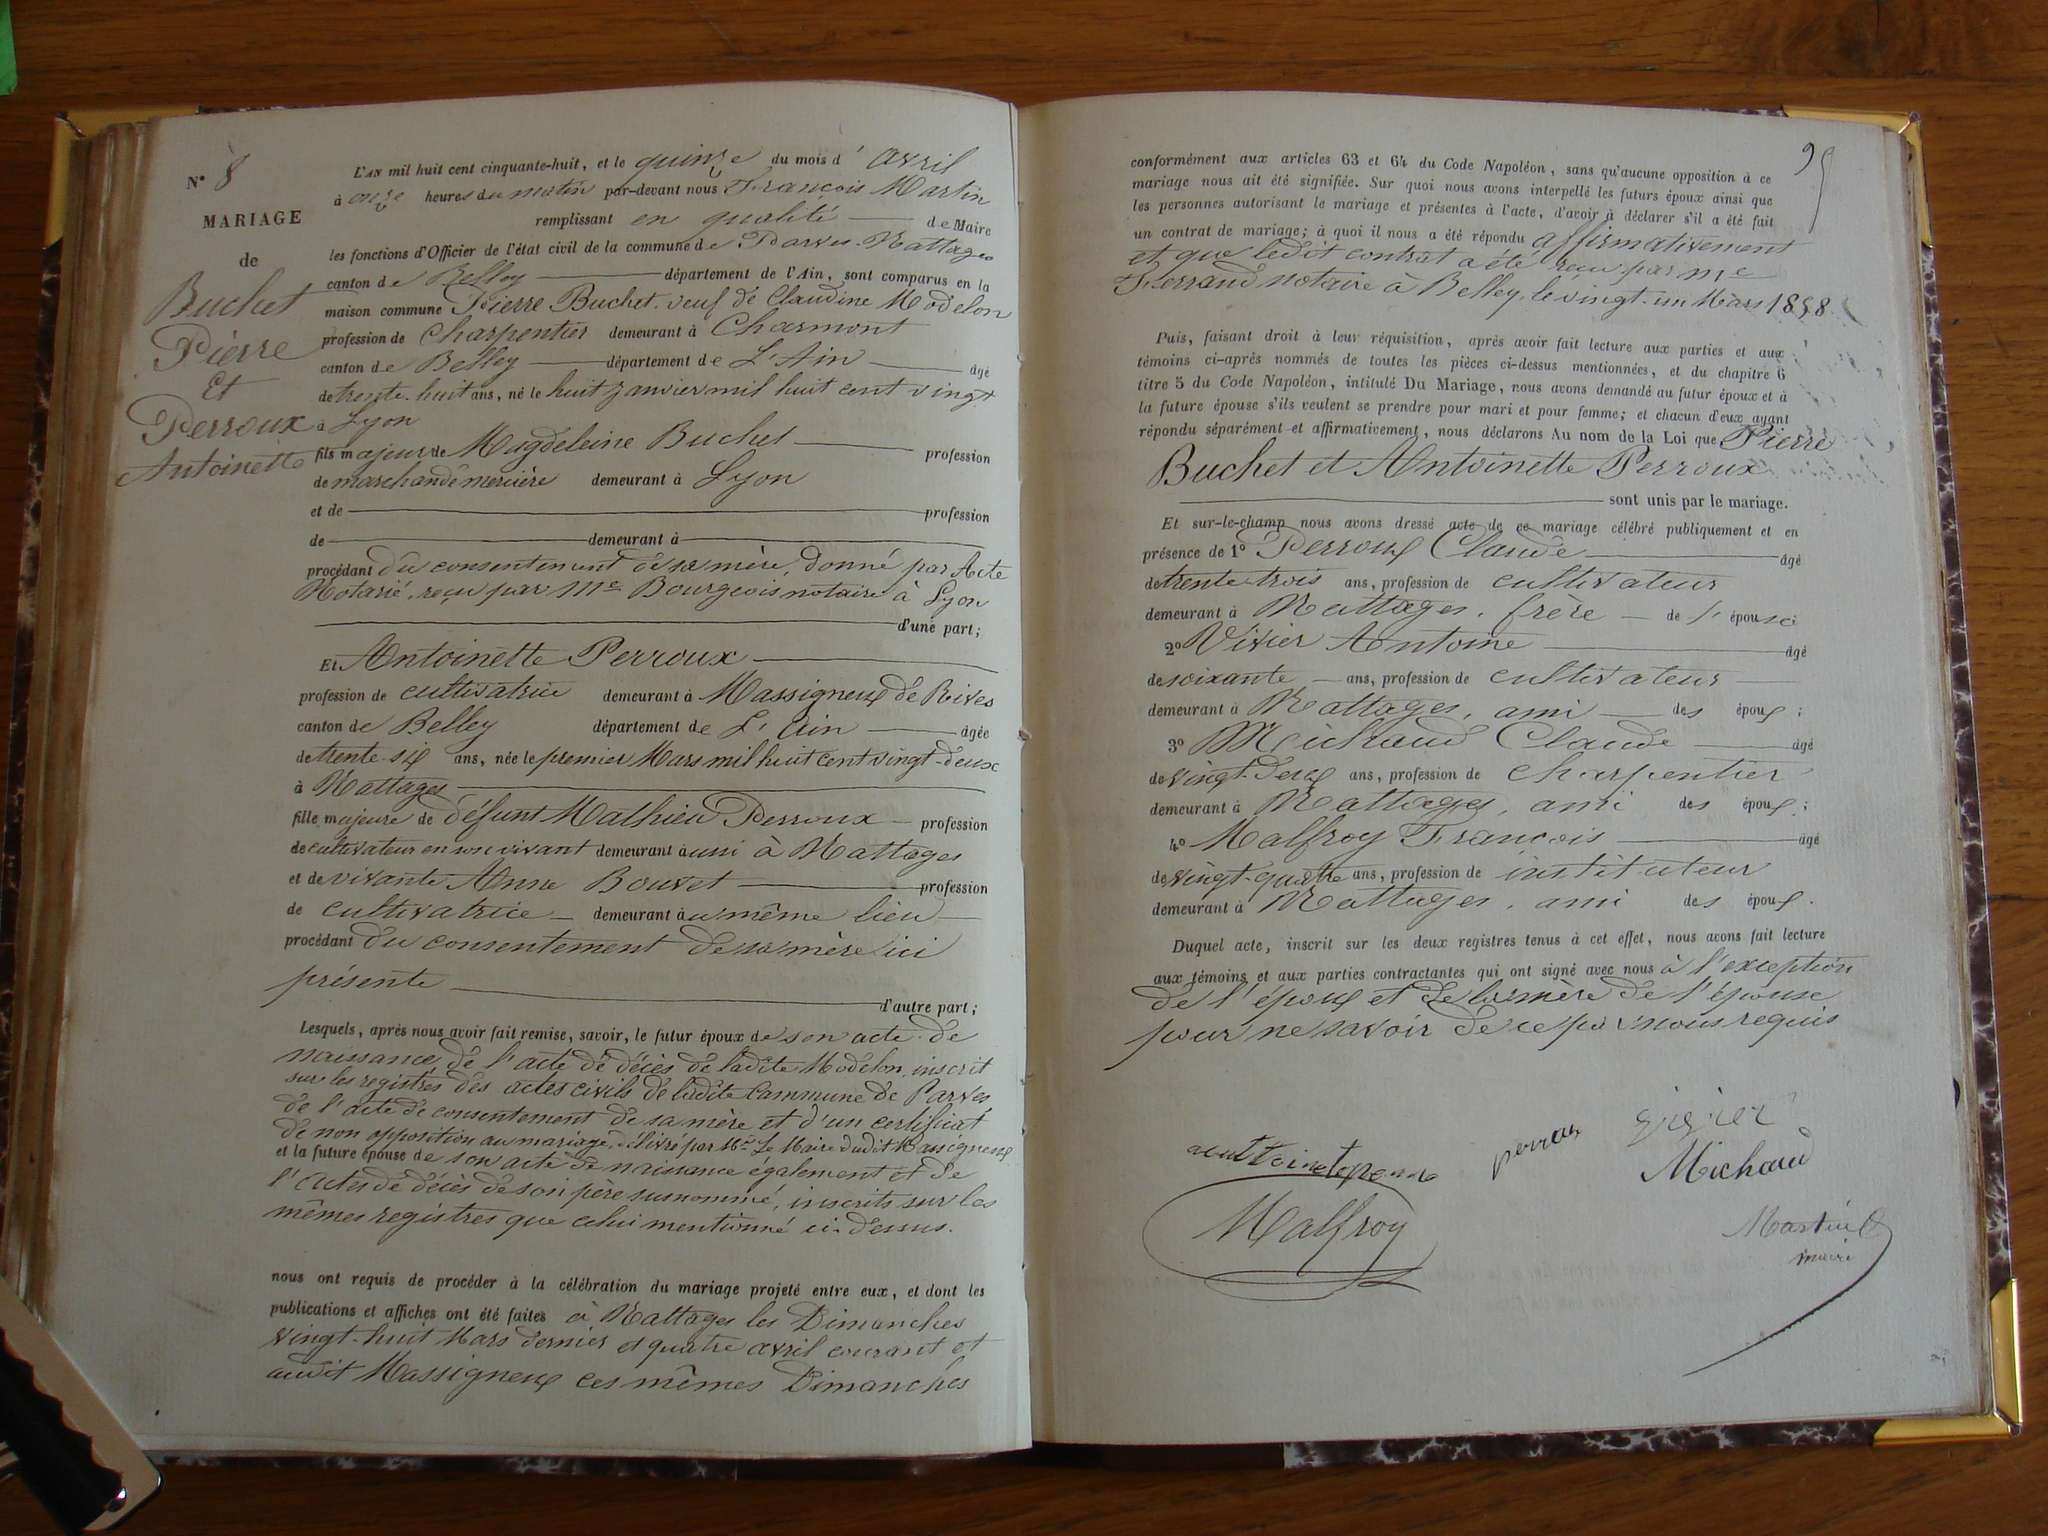 N° 8
MARIAGE
de
Buchet
Pierre
Et
Perroux
Antoinette
L'AN mil huit cent cinquante-huit, et le quinze du mois d' avril
à onze heures du matin par-devant nous François Martin
remplissant en qualité de Maire
les fonctions d'Officier de l'état civil de la commune de Parves-Nattages
canton de Belley département de l'Ain, sont comparus en la
maison commune Pierre Buchet veuf de Claudine Modelon
profession de Charpentier demeurant à Charmont
canton de Belley département de L'Ain âgé
de trente-huit ans, né le huit Janvier mil huit cent vingt
à Lyon
fils majeur de Magdeleine Buchet profession
de marchande mercière demeurant à Lyon
et de profession
de demeurant à
procédant du consentement de sa mère, donné par Acte
Notarié, reçu par Me Bourgeois notaire à Lyon
d'une part;
Et Antoinette Perroux
profession de cultivatrice demeurant à Massigneux de Rives
canton de Belley département de L'Ain âgée
de trente-six ans, née le premier Mars mil huit cent vingt-deux
à Nattages
fille majeure de défunt Mathieu Perroux profession
de cultivateur en son vivant demeurant aussi à Nattages
et de vivante Anne Bouvet profession
de cultivatrice demeurant au même lieu
procédant du consentement de sa mère ici
présente
d'autre part;
Lesquels, après nous avoir fait remise, savoir, le futur époux de son acte de
naissance, de l'acte de décès de ladite Modelon, inscrit
sur les registres des actes civils de ladite Commune de Parves
de l'acte de consentement de sa mère et d'un certificat
de non opposition au mariage, délivré par Mr Le Maire dudit Massigneux
et la future épouse de son acte de naissance également et de
l'acte de décès de son père susnommé, inscrits sur les
mêmes registres que celui mentionné ci-dessus.
nous ont requis de procéder à la célébration du mariage projeté entre eux, et dont les
publications et affiches ont été faites à Nattages les Dimanches
vingt-huit Mars dernier et quatre avril courant et
audit Massigneux ces mêmes Dimanches
95
conformément aux articles 63 et 64 du Code Napoléon, sans qu'aucune opposition à ce
mariage nous ait été signifiée. Sur quoi nous avons interpellé les futurs époux ainsi que
les personnes autorisant le mariage et présentes à l'acte, d'avoir à déclarer s'il a été fait
un contrat de mariage; à quoi il nous a été répondu affirmativement
et que ledit contrat a été reçu par Me
Ferrand notaire à Belley, le vingt-un Mars 1858
Puis, faisant droit à leur réquisition, après avoir fait lecture aux parties et aux
témoins ci-après nommés de toutes les pièces ci-dessus mentionnées, et du chapitre 6
titre 5 du Code Napoléon, intitulé Du Mariage, nous avons demandé au futur époux et à
la future épouse s'ils veulent se prendre pour mari et pour femme; et chacun d'eux ayant
répondu séparément et affirmativement, nous déclarons Au nom de la Loi que Pierre
Buchet et Antoinette Perroux
sont unis par le mariage.
Et sur-le-champ nous avons dressé acte de ce mariage célébré publiquement et en
présence de 1° Perroux Claude âgé
de trente-trois ans, profession de cultivateur
demeurant à Nattages, frère de l'épouse
2° Vivier Antoine âgé
de soixante ans, profession de cultivateur
demeurant à Nattages, ami des époux;
3° Michaud Claude âgé
de vingt-deux ans, profession de charpentier
demeurant à Nattages, ami des époux;
4° Malfroy François âgé
de vingt-quatre ans, profession de instituteur
demeurant à Nattages, ami des époux.
Duquel acte, inscrit sur les deux registres tenus à cet effet, nous avons fait lecture
aux témoins et aux parties contractantes qui ont signé avec nous à l'exception
de l'époux et de la mère de l'épouse
pour ne savoir de ce par nous requis
perroux
Michaud
Malfroy
Martin
maire